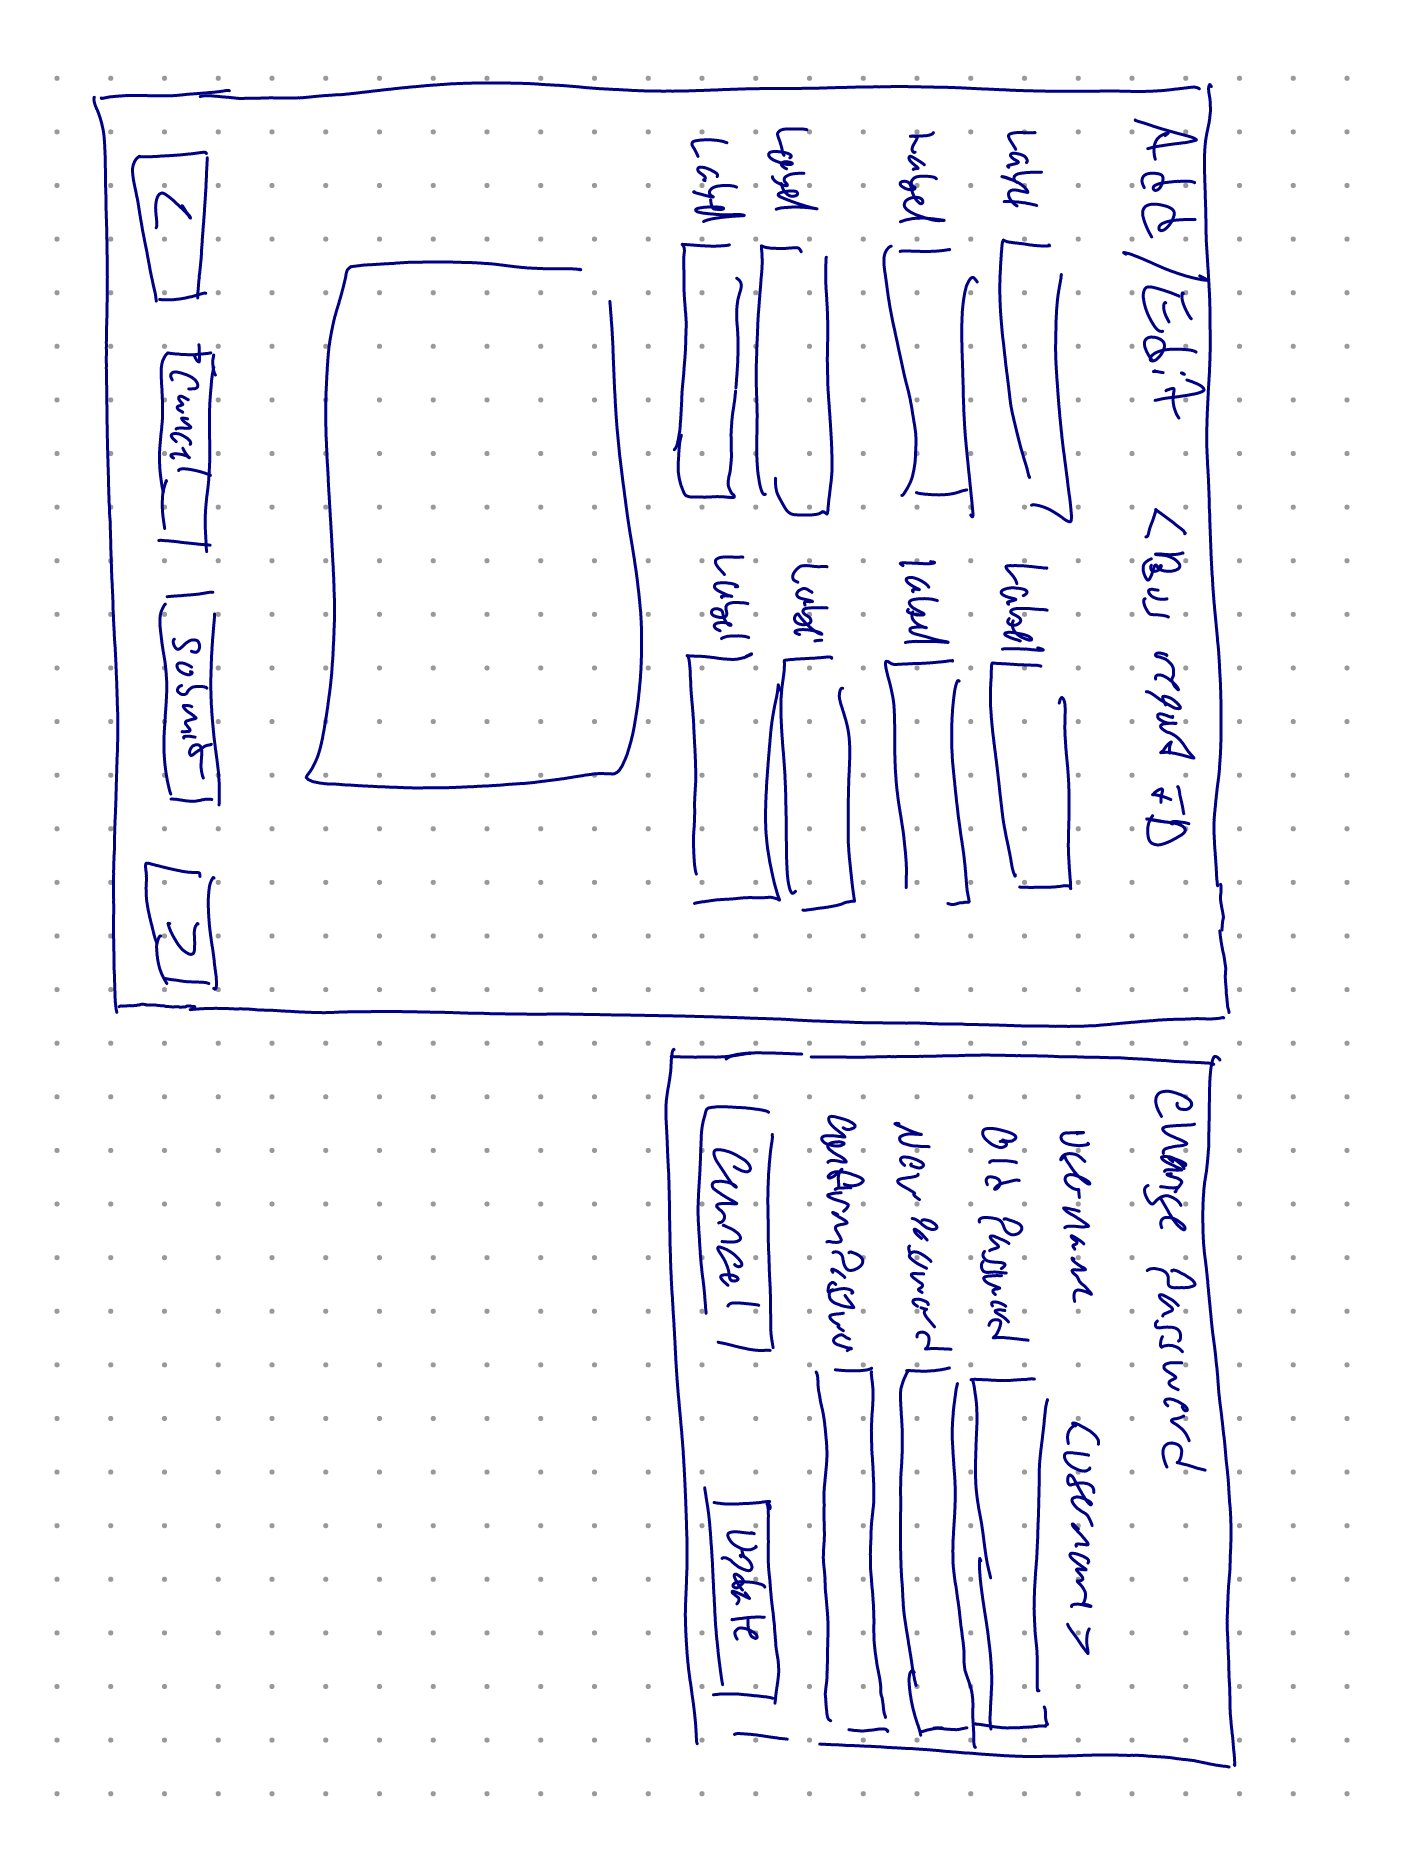 Add/Edit <Bug report ID
Label Label
Label Label
Label Label
Label Label
< Cancel Submit >
Change Password
Username <Username>
Old Password
New Password
Confirm
Cancel Update